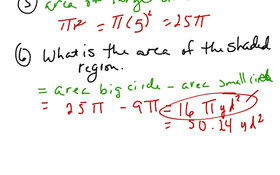 ⑤ area of large
πr² = π(5)² = 25π
⑥ What is the area of the shaded
region.
= area big circle - area small circle
= 25π - 9π = 16π yd²
= 50.24 yd²